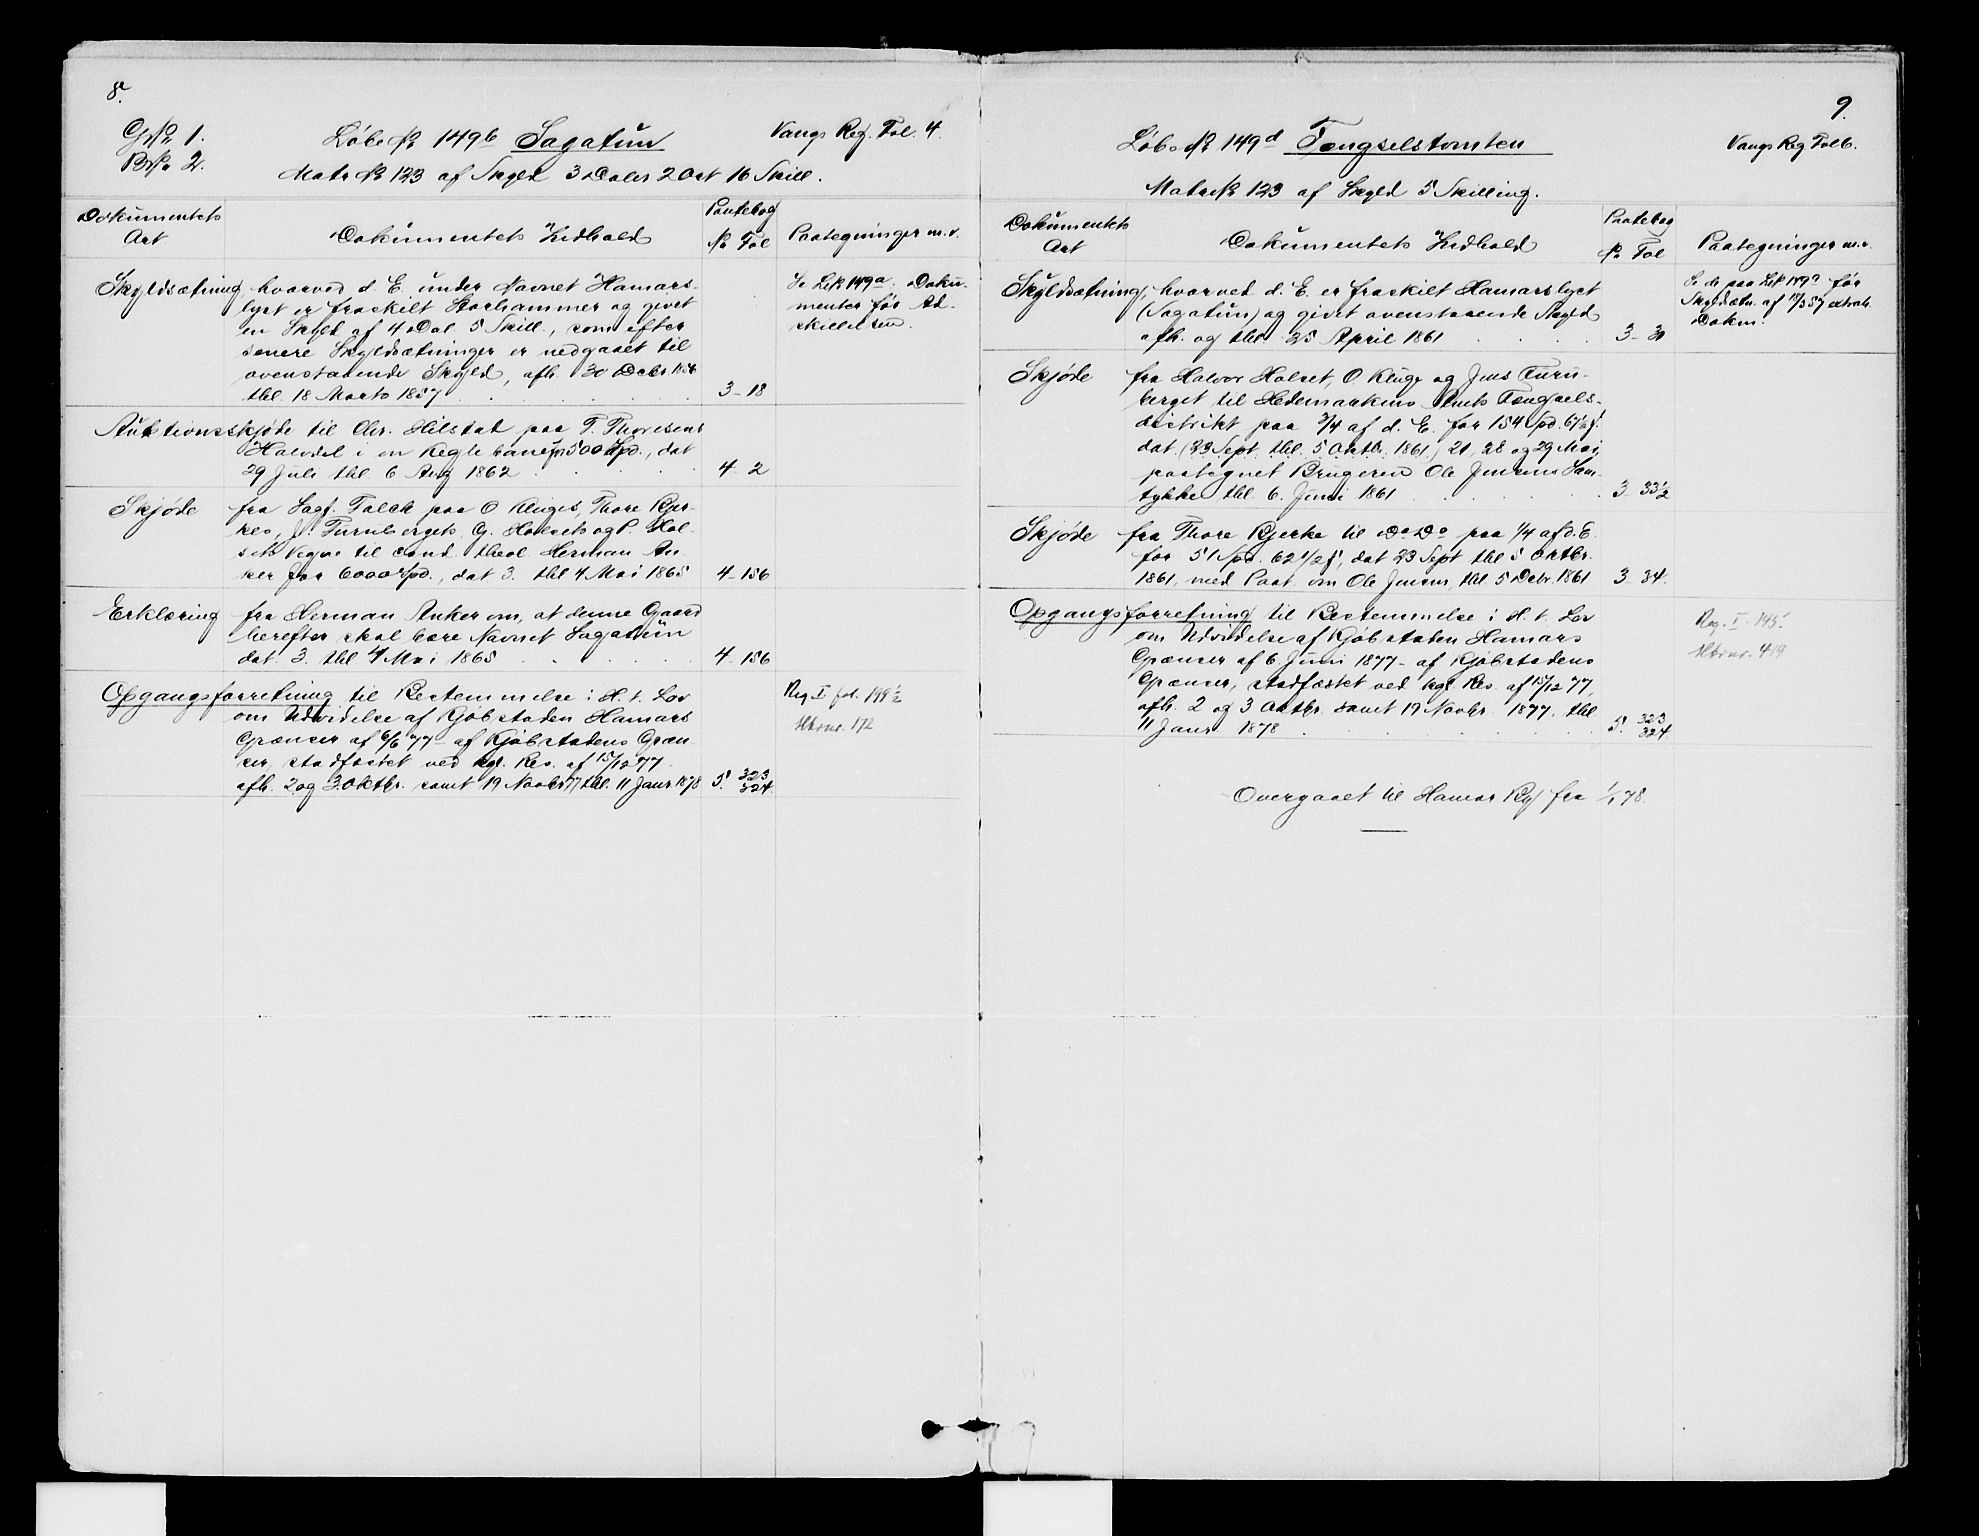 8.
GNo 1.
BNo 2.
Løbe No 149b Sagatun
Vangs Reg. Fol. 4.
Matr No 123 af Skyld 3 Daler 2 Ort 16 Skill.
Dokumentets Art
Dokumentets Indhold
Pantebog
No Fol
Paategninger m.v.
Skyldsætning hvorved d. E. under Navnet Hamars-
lyst er fraskilt Storhammer og givet
en Skyld af 4 Dal. 5 Skill., som efter
senere Skyldsætninger er nedgaaet til
ovenstaaende Skyld, afh. 30 Decbr 1856
thl. 18 Marts 1857 3-18
Se LNo 149a. Doku-
menter før Ad-
skillelsen.
Auktionsskjøde til Chr. Hilstad paa T. Thoresens
Halvdel i en Keglebane for 500 Spd., dat
29 Juli thl. 6 Aug 1862 4-2
Skjøde fra Sagf. Falch paa O Kluges, Thore Kjer-
kes, J. Furubergets, G. Holsets og P. Hol-
sets Vegne til cand. theol Herman An-
ker for 6000 Spd., dat 3. thl 4 Mai 1865 4-156
Erklæring fra Herman Anker om, at denne Gaard
herefter skal bære Navnet Sagatun
dat. 3. thl 4 Mai 1865 4-156
Opgangsforretning til Bestemmelse i H. t. Lov
om Udvidelse af Kjøbstaden Hamars
Grænser af 6/6 77 - af Kjøbstadens Græn-
ser, stadfæstet ved kgl. Res. af 15/12 77
afh. 2 og 3. Oktbr. samt 19 Novbr 77 thl. 11 Janr 1878 5. 323 324
Reg I fol. 199 1/2
Hbrnr. 172
9.
Løbe No 149d Fængselstomten
Vangs Reg Fol 6.
Matr No 123 af Skyld 5 Skilling.
Dokumentets Art
Dokumentets Indhold
Pantebog
No Fol
Paategninger m.v.
Skyldsætning, hvorved d. E. er fraskilt Hamarslyst
(Sagatun) og givet ovenstaaende Skyld
afh. og thl. 25 April 1861 3-31
Se de paa LNo 149a før
Skyldsætn. af 18/3 57 extrah.
Dokm.
Skjøde fra Halvor Holset, O. Kluge og Jens Furu-
berget til Hedemarkens Amts Fængsels-
distrikt paa 3/4 af d. E. for 154 Spd. 67 1/2 s.
dat (23 Sept. thl. 5 Oktbr. 1861,) 21, 28 og 29 Mai,
paategnet Brugeren Ole Jensens Sam-
tykke thl. 6. Juni 1861 3 33 1/2
Skjøde fra Thore Kjerke til Do Do paa 1/4 af d. E.
for 51 Spd. 62 1/2 s, dat 23 Sept thl 5 Oktbr.
1861, med Paat. om Ole Jensen, thl. 5 Decbr. 1861 3 34.
Opgangsforretning til Bestemmelse i H. t. Lov
om Udvidelse af Kjøbstaden Hamars
Grænser af 6. Juni 1877 - af Kjøbstadens
Grænser, stadfæstet ved kgl. Res. af 15/12 77,
afh. 2 og 3 Oktbr. samt 19 Novbr. 1877. thl.
11 Janr 1878 5. 323 324
Reg. I. 145.
Hbrnr. 419
Overgaaet til Hamar Reg fra 1/1 78.